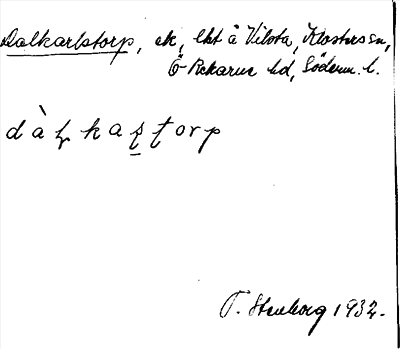 Dalkarlstorp, ek, lht å Vilsta, Klosters sn,
Ö Rekarne hd, Söderm. l.
dàl̥kaʂʈorp
T. Stenborg 1932.